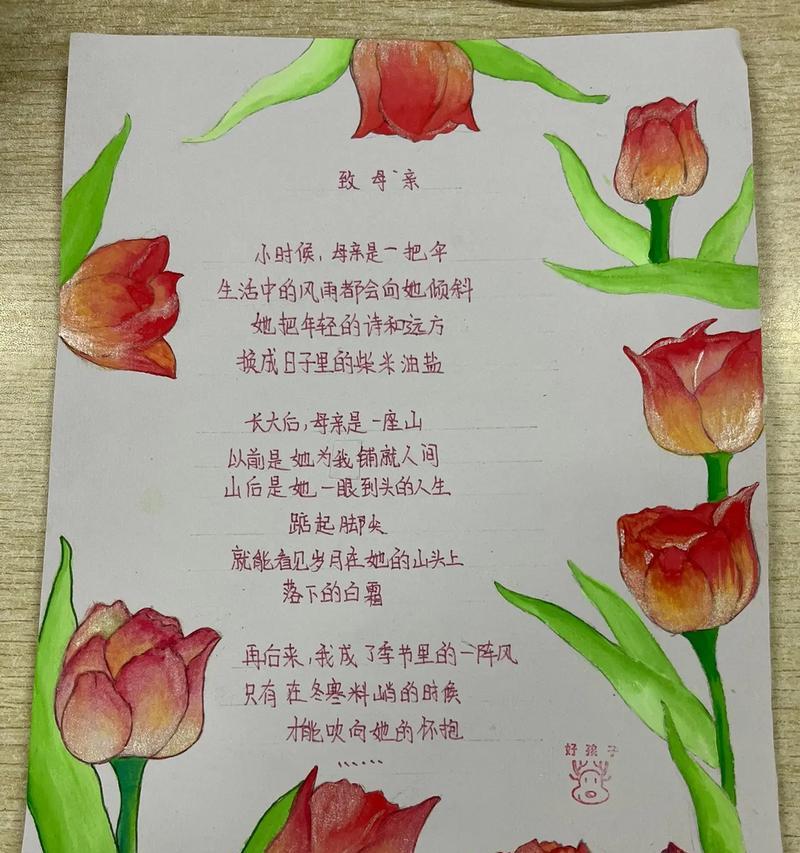 致母亲
小时候，母亲是一把伞
生活中的风雨都会向她倾斜
她把年轻的诗和远方
换成日子里的柴米油盐
长大后，母亲是一座山
以前是她为我铺就人间
山后是她一眼到头的人生
踮起脚尖
就能看见岁月在她的山头上
落下的白霜
再后来，我成了季节里的一阵风
只有在冬寒料峭的时候
才能吹向她的怀抱
......
好孩子